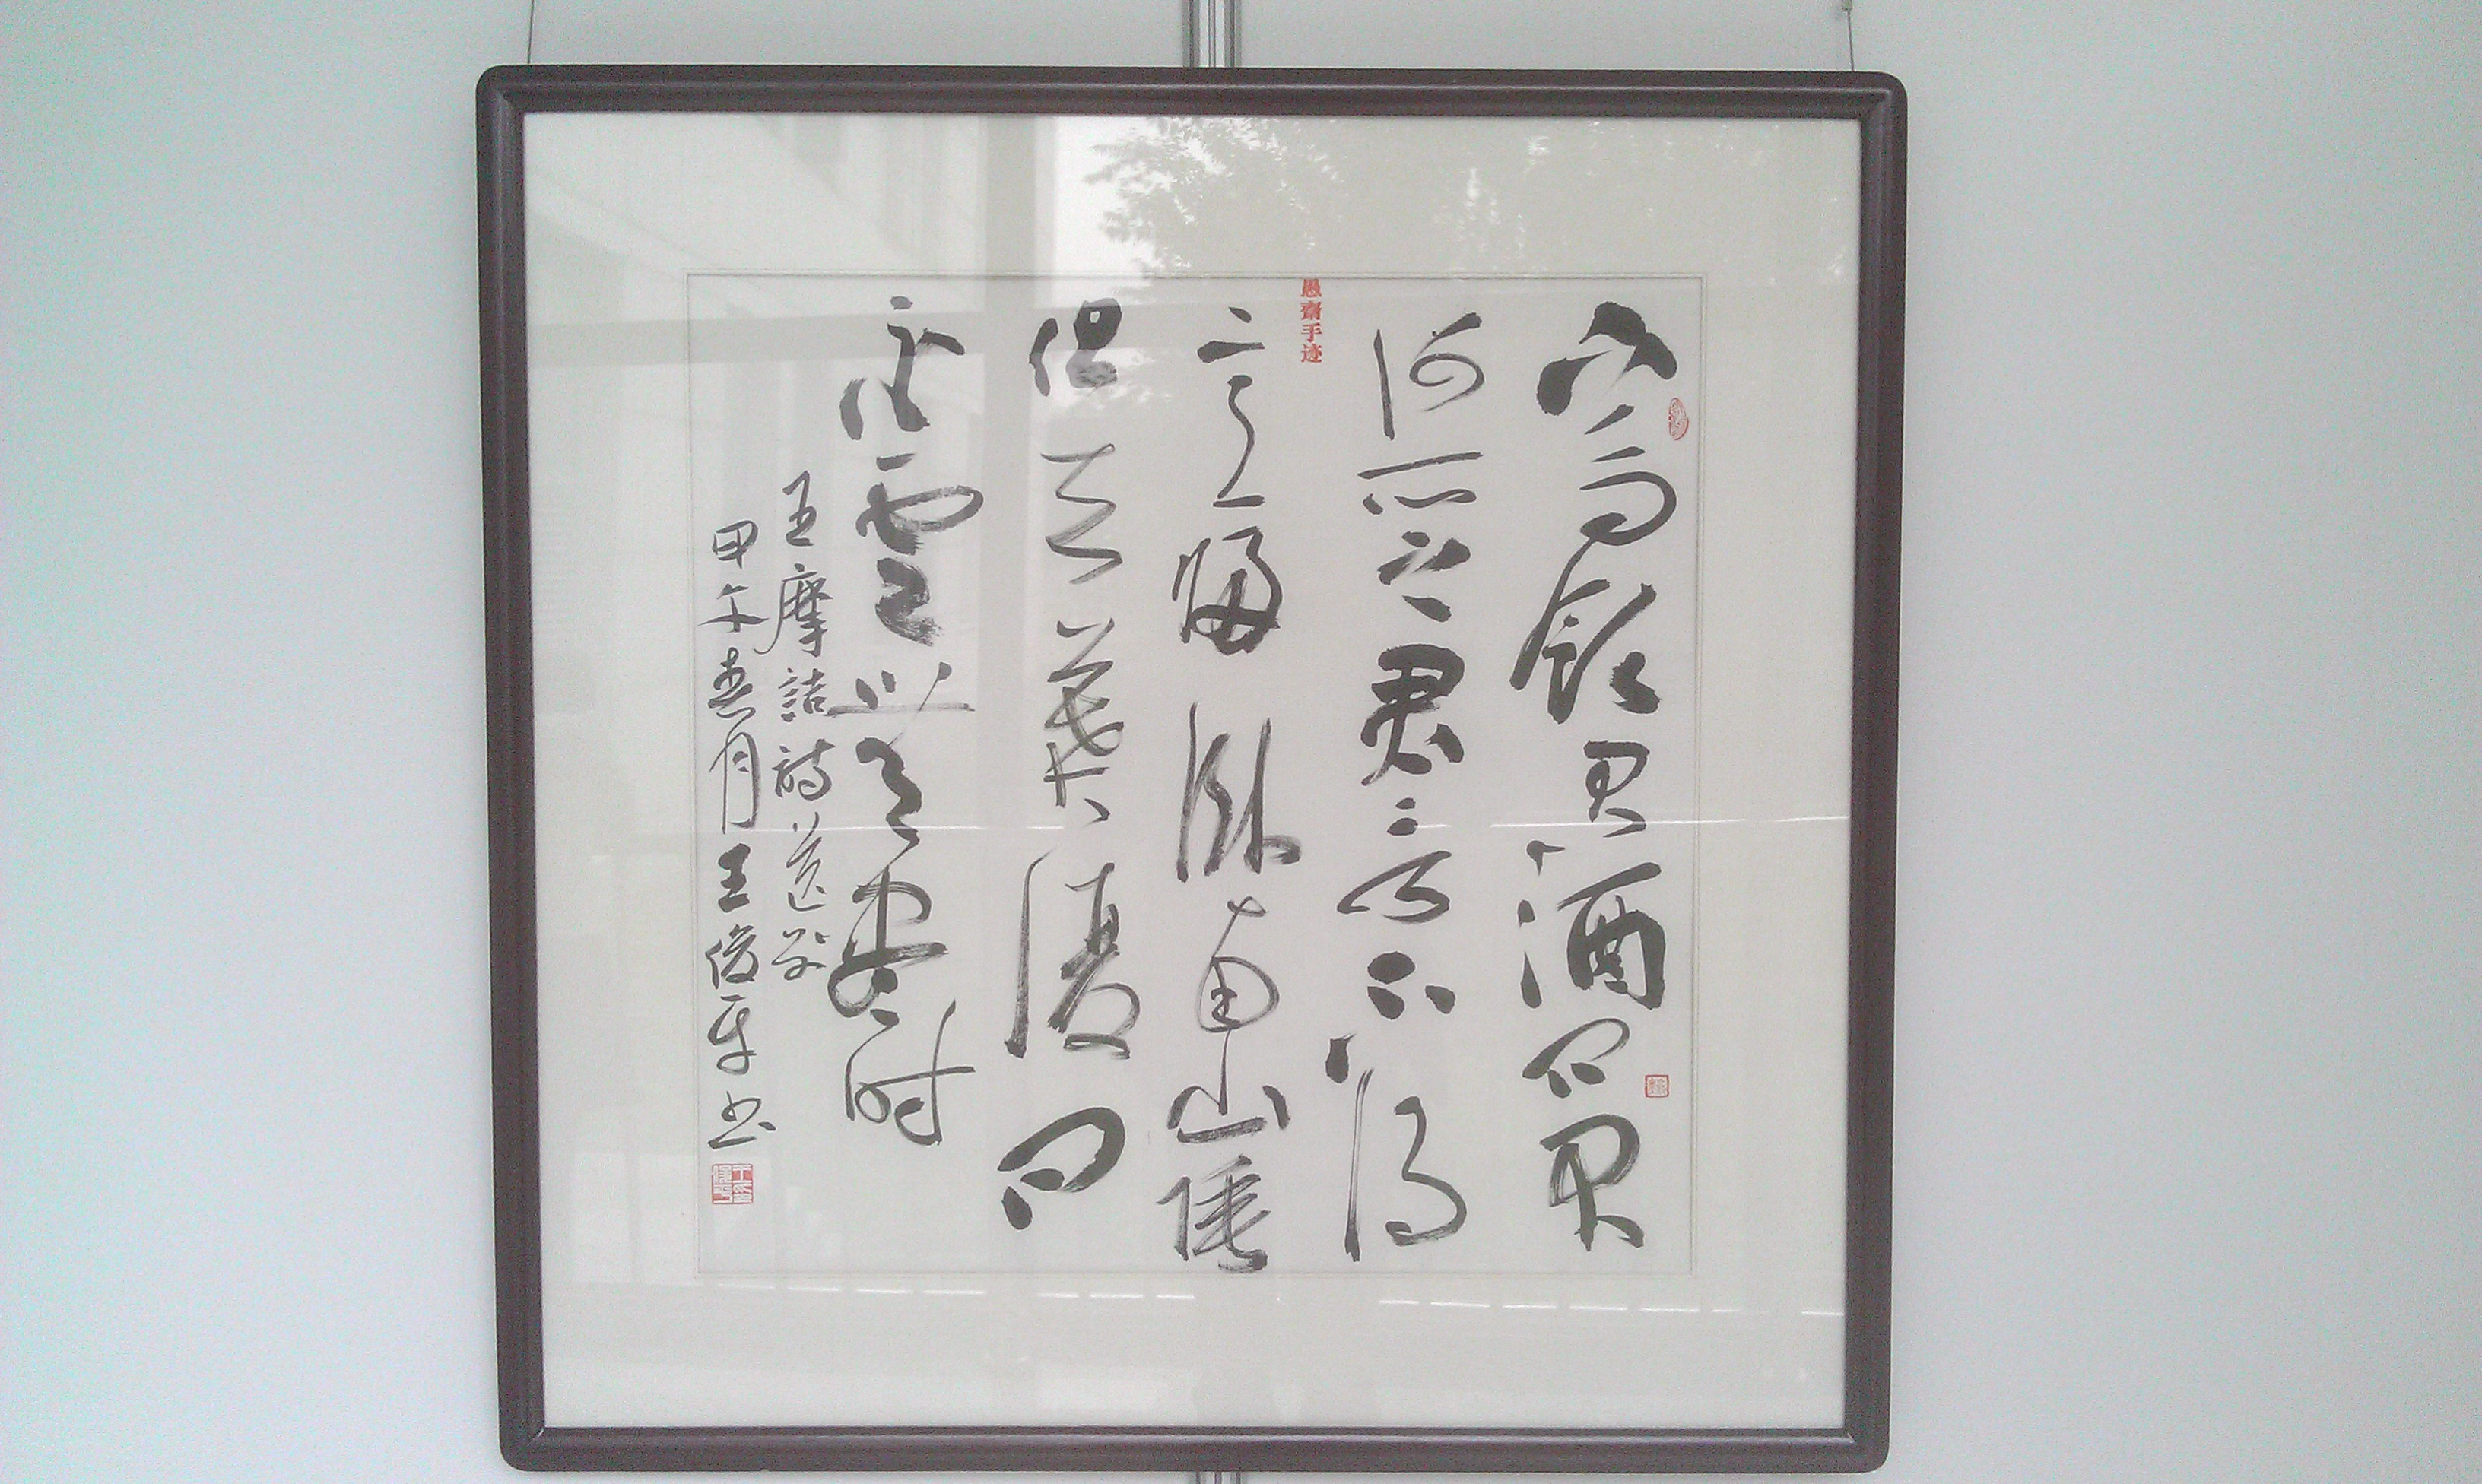 下馬飲君酒問君
何所之君言不得
愚齋手迹
意歸臥南山陲
但去莫復問
白雲無盡時
王摩詰詩送別
甲午春月王俊平书